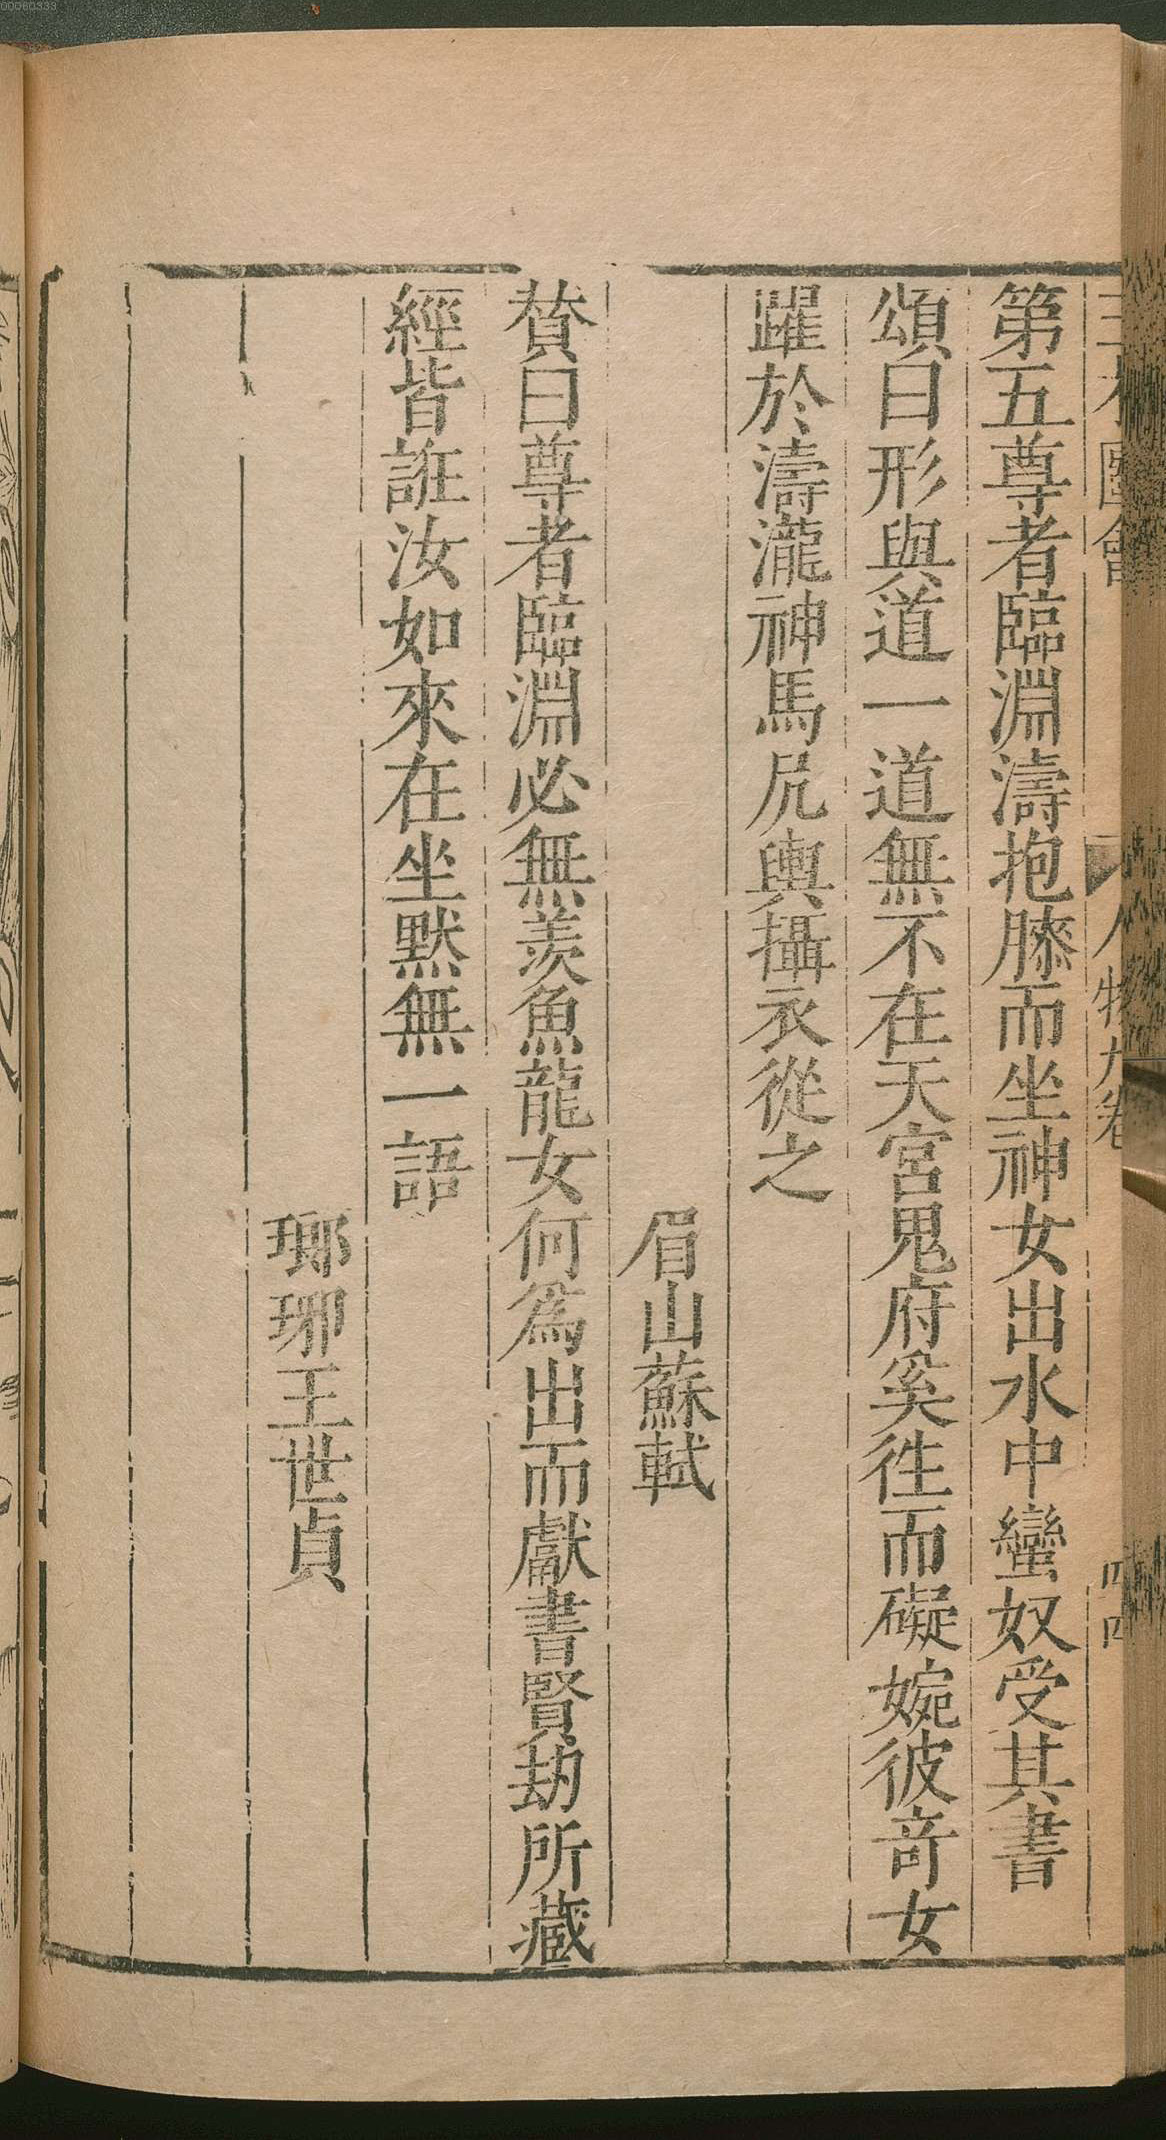 00060333
圖會
人物九卷
第五尊者臨淵濤抱膝而坐神女出水中蠻奴受其書
頌曰形與道一道無不在天宮鬼府奚徃而礙婉彼竒女
躍於濤瀧神馬尻輿攝衣從之
眉山蘇軾
賛曰尊者臨淵必無羨魚龍女何爲出而獻書賢劫所藏
經皆誑汝如來在坐默無一語
瑯琊王世貞